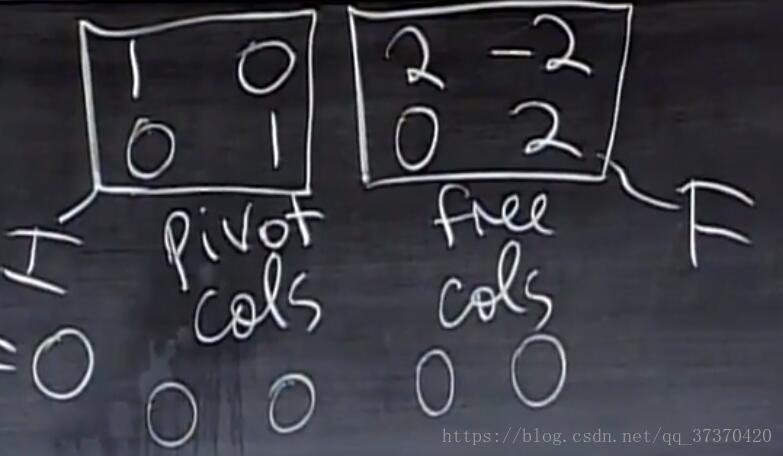 1 0 2 -2
0 1 0 2
I pivot cols free cols F
= 0
0 0 0 0
https://blog.csdn.net/qq_37370420